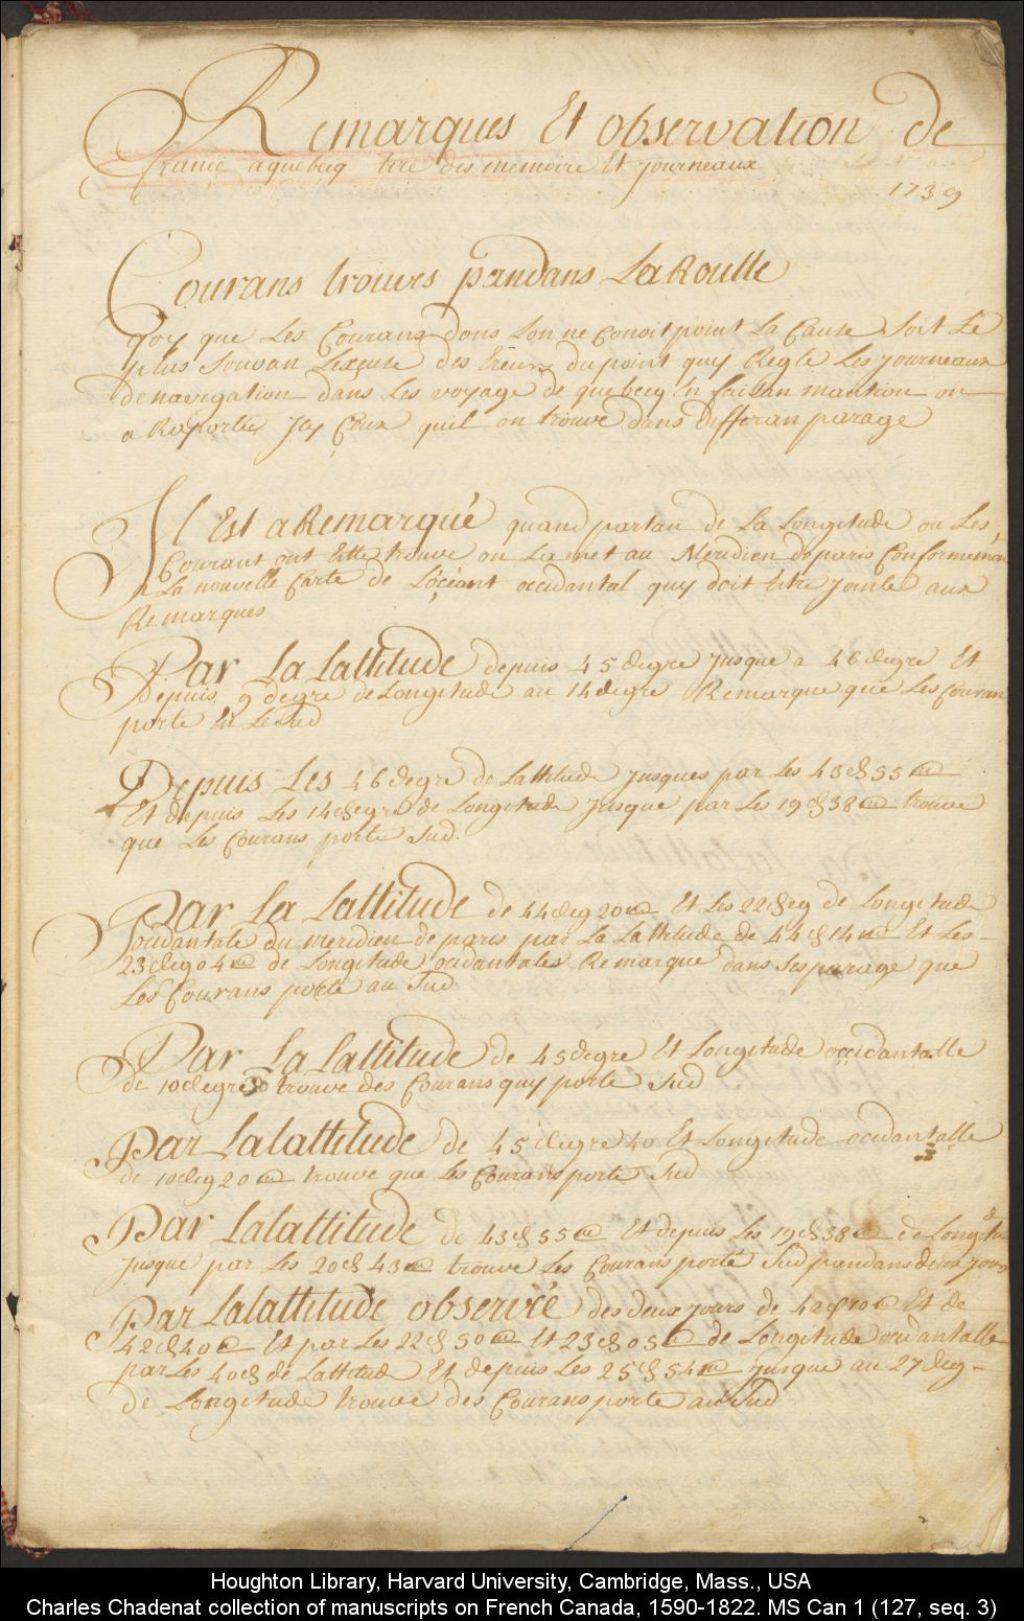 Remarques Et observation de
france a quebecq tiré des memoire Et journeaux
1739
Courans trouves pandans La Routte
Quoy que Les Courans dons Lon ne Conoit point La Cause soit Le
plus souvan Lexcuse des Ereurs du point quy Regle Les journeaux
de navigation dans Les voyage de quebecq En faisan mantion on
a Raportés Icy Ceux quil on trouve dans differan parage
Il Est a Remarqué quand partan de La Longitude ou Les
Courant ont Etté trouve on La met au Meridien de paris Conformémen
a La nouvelle Carte de L'océant occidantal quy doit Etre jointe aux
Remarques
Par La Lattitude depuis 45 degre jusque a 46 degre Et
Depuis 9 degre de Longitude au 14 degre Remarque que Les Couran
porte En Le Sud
Depuis Les 46 degre de Lattitude jusques par les 43d 55m
Et depuis Les 14 degre de Longitude jusque par Les 19d 38m trouve
que Les Courans porte Sud.
Par La Lattitude de 44 deg 20m Et Les 22 deg de Longitude
ocidantale du meridien de paris par La Lattitude de 44d 14m Et Les
23 deg 04m de Longitude ocidantales Remarque dans ses parage que
Les Courans porte au Sud
Par La Lattitude de 45 degre Et Longitude occidantalle
de 10 degre 30 trouve des Courans quy porte Sud
Par La lattitude de 45 degre 40 Et Longitude ocidantalle
de 10 deg 20m trouve que Les Courans porte Sud
Par La lattitude de 43d 55m Et depuis Les 19d 38m de Longitude
jusque par Les 20d 43m trouve Les Courans porté Sud pandans deux jours
Par La lattitude observée des deux jours de 42d 10m Et de
42d 40m Et par Les 22d 50m Et 23d 05m de Longitude ocidantalle
par Les 40d de Lattitude Et depuis Les 25d 54m jusque au 27 deg
de Longitude trouve des Courans porte au Sud
Houghton Library, Harvard University, Cambridge, Mass., USA
Charles Chadenat collection of manuscripts on French Canada, 1590-1822. MS Can 1 (127, seq. 3)